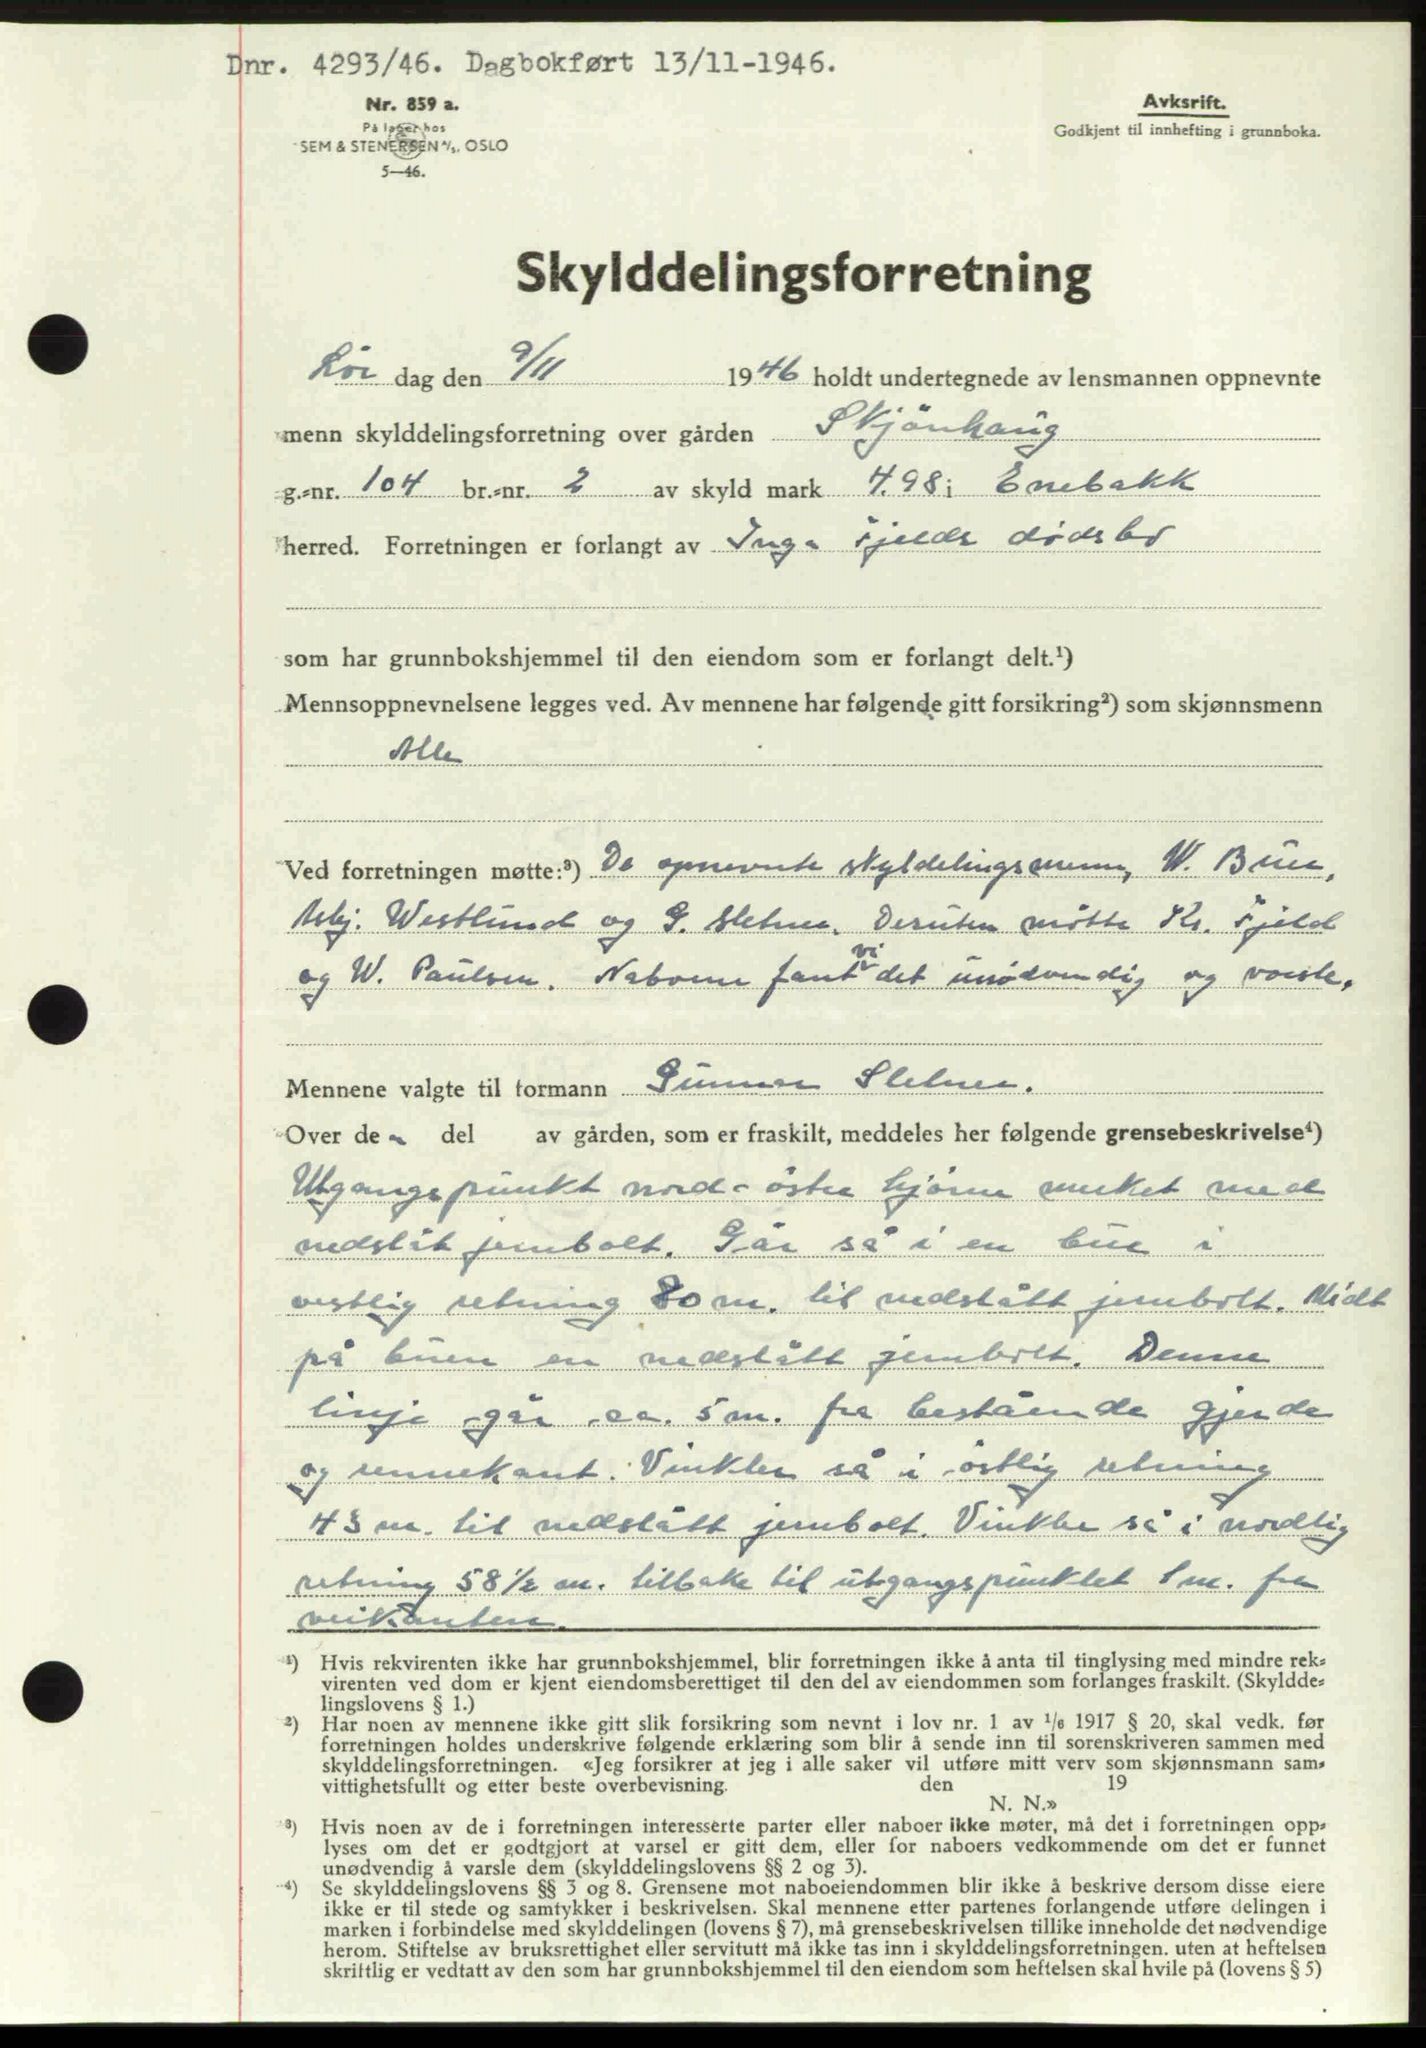 Dnr. 4293/46. Dagbokført 13/11-1946.
Nr. 859 a.
På lager hos
SEM & STENERSEN A/S, OSLO
5—46.
Avksrift.
Godkjent til innhefting i grunnboka.
Skylddelingsforretning
Lør dag den 9/11 1946 holdt undertegnede av lensmannen oppnevnte
menn skylddelingsforretning over gården Skjönhaug
g.=nr. 104 br.=nr. 2 av skyld mark 4.98 i Enebakk
herred. Forretningen er forlangt av Inga Fjelds dødsbo
som har grunnbokshjemmel til den eiendom som er forlangt delt.¹)
Mennsoppnevnelsene legges ved. Av mennene har følgende gitt forsikring²) som skjønnsmenn
Alle
Ved forretningen møtte:³) De opnevnte skyldelingsmenn, W. Buer,
Asbj. Westlund og G. Sletner. Desuten møtte Kr. Fjeld
og W. Paulsen. Naboene fant vi det unödvendig og varsle.
Mennene valgte til formann Gunnar Sletner.
Over den del av gården, som er fraskilt, meddeles her følgende grensebeskrivelse⁴)
Utgangspunkt nord-östre hjörne merket med
nedslåt jernbolt. Går så i en bue i
vestlig retning 80 m. til nedslått jernbolt. Midt
på buen en nedslått jernbolt. Denne
linje går ca. 5 m. fra bestående gjerde
og rennekant. Vinkler så i östlig retning
43 m. til nedslått jernbolt. Vinkler så i nordlig
retning 58 1/2 m. tilbake til utgangspunktet 1 m. fra
veikanten.
¹) Hvis rekvirenten ikke har grunnbokshjemmel, blir forretningen ikke å anta til tinglysing med mindre rek=
virenten ved dom er kjent eiendomsberettiget til den del av eiendommen som forlanges fraskilt. (Skyldde=
lingslovens § 1.)
²) Har noen av mennene ikke gitt slik forsikring som nevnt i lov nr. 1 av 1/6 1917 § 20, skal vedk. før
forretningen holdes underskrive følgende erklæring som blir å sende inn til sorenskriveren sammen med
skylddelingsforretningen. «Jeg forsikrer at jeg i alle saker vil utføre mitt verv som skjønnsmann sam=
vittighetsfullt og etter beste overbevisning. den 19
N. N.»
³) Hvis noen av de i forretningen interesserte parter eller naboer ikke møter, må det i forretningen opp=
lyses om det er godtgjort at varsel er gitt dem, eller for naboers vedkommende om det er funnet
unødvendig å varsle dem (skylddelingslovens §§ 2 og 3).
⁴) Se skylddelingslovens §§ 3 og 8. Grensene mot naboeiendommen blir ikke å beskrive dersom disse eiere
ikke er til stede og samtykker i beskrivelsen. Skal mennene etter partenes forlangende utføre delingen i
marken i forbindelse med skylddelingen (lovens § 7), må grensebeskrivelsen tillike inneholde det nødvendige
herom. Stiftelse av bruksrettighet eller servitutt må ikke tas inn i skylddelingsforretningen. uten at heftelsen
skriftlig er vedtatt av den som har grunnbokshjemmel til den eiendom som heftelsen skal hvile på (lovens § 5)